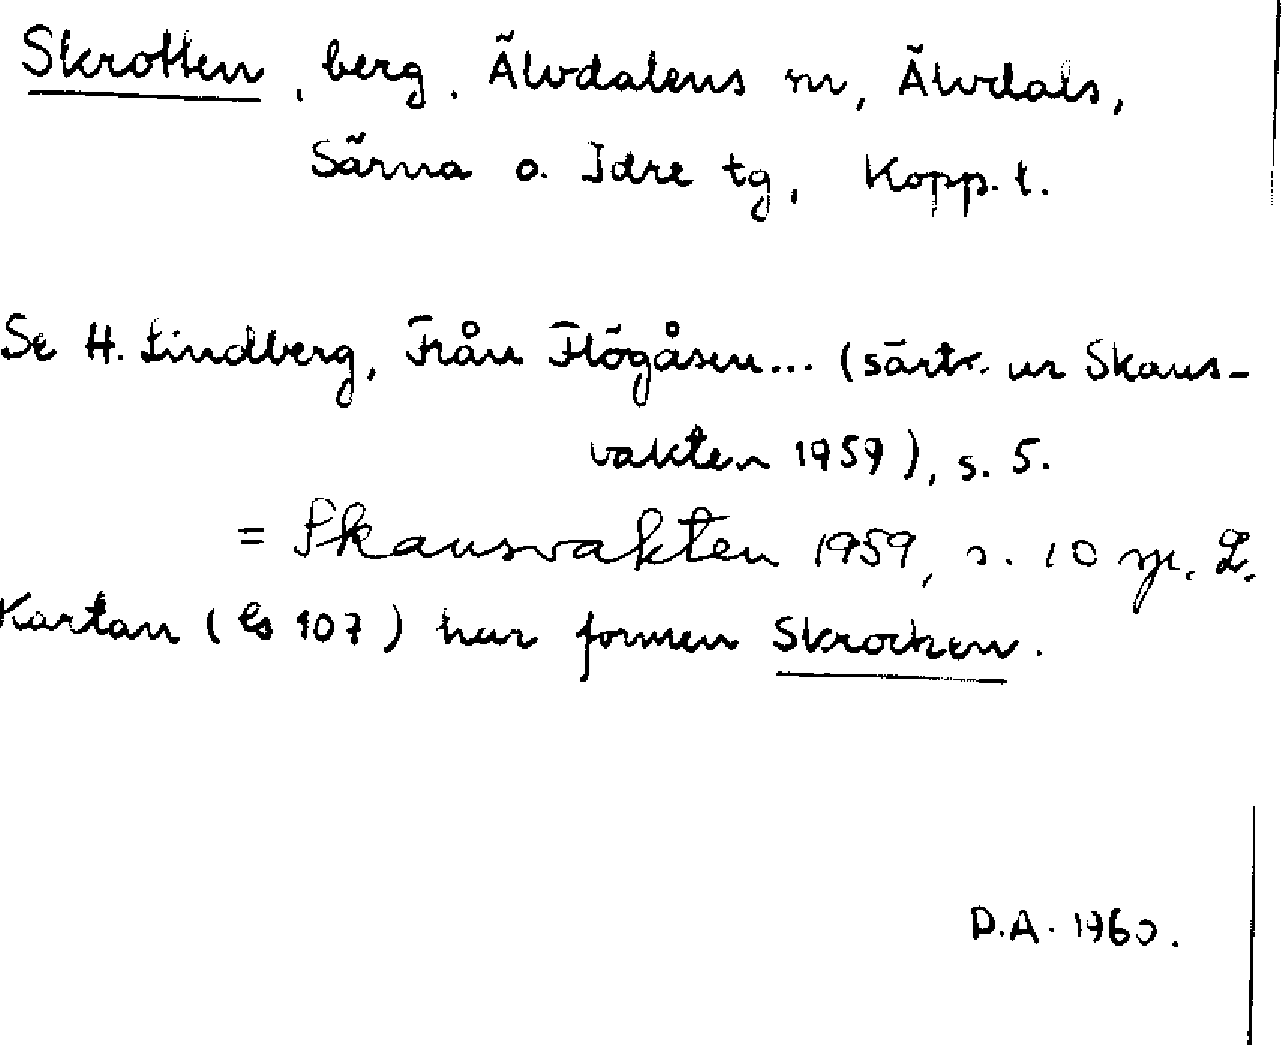 Skrotten, berg. Älvdalens sn, Älvdals,
Särna o. Idre tg, Kopp. l.
Se H. Lindberg, Från Flögåsen... (särtr. ur Skans-
vakten 1959), s. 5.
= Skansvakten 1959, s. 10 sp. 2.
Kartan (Gs 107) har formen Skrocken.
D.A. 1960.